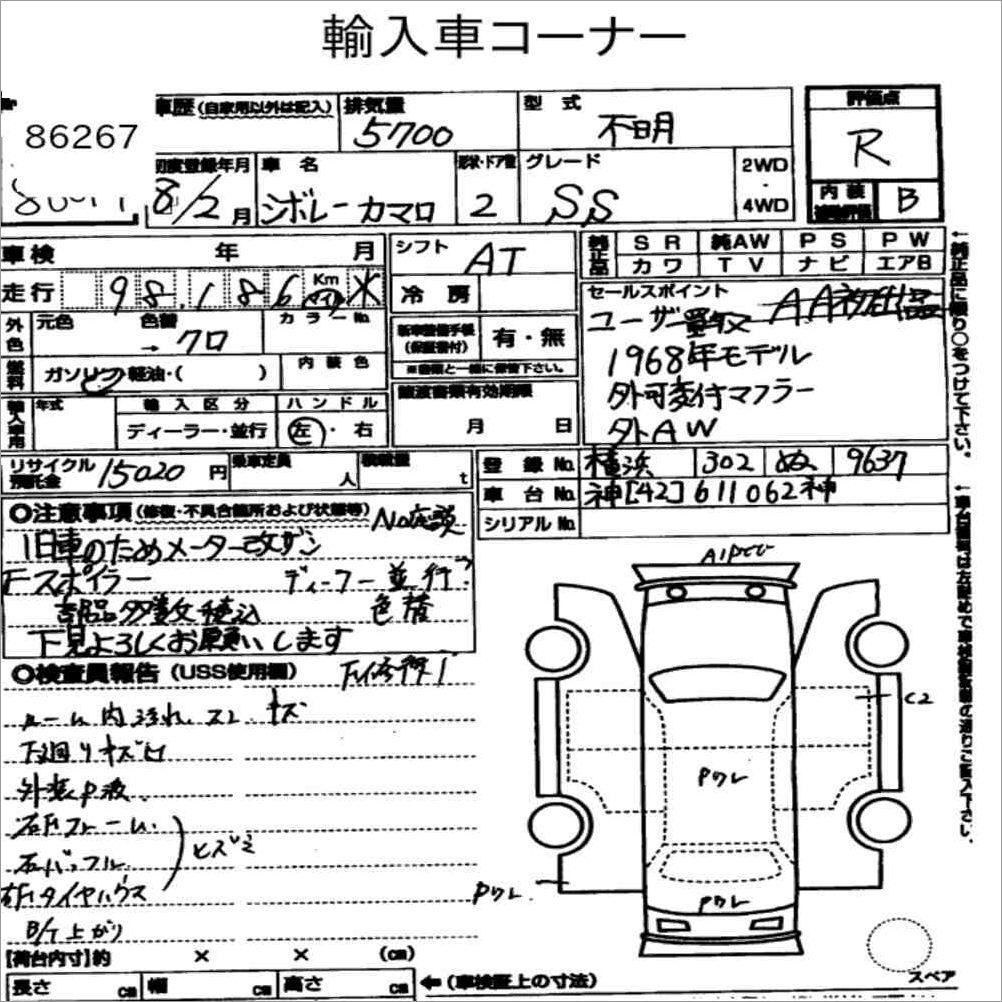 輸入車コーナー
車歴 (自家用以外は記入) 排気量 型式 評価点
86267 5700 不明 R
初度登録年月 車名 形状・ドア数 グレード 2WD ・ 4WD 内装 B
8/2月 シボレー カマロ 2 SS
車検 年 月 シフト AT 純正品 SR 純AW PS PW
カワ TV ナビ エアB
走行 98,186 Km マイル 冷房
セールスポイント
外色 元色 色替 カラーNo.
→ クロ
新車整備手帳 (保証書付) 有・無
※書類と一緒に保管下さい。
ユーザー買取 AA初出品
1968年モデル
外可変付マフラー
外AW
燃料 ガソリン・軽油・( ) 内装色
譲渡書類有効期限
月 日
輸入車用 年式 輸入区分 ハンドル
ディーラー・並行 左・右
リサイクル預託金 15020円 乗車定員 人 積載量 t
登録No. 横浜 302 ぬ 9637
車台No. 神[42]611062神
シリアルNo.
○注意事項 (修復・不具合箇所および状態等) No.
旧車のためメーター改ザン
Fスポイラー ディーラー並行?
部品多数積込
下見よろしくお願いします
○検査員報告 (USS使用欄)
ルーム内汚れ、スレ、キズ
下廻りキズ
外装P波
右Fフレーム
ヒズミ
右バッフル
右Fタイヤハウス
B/T上がり
C2
Pワレ
Pワレ
Pワレ
【荷台内寸】約 × × (cm)
長さ cm 幅 cm 高さ cm ← (車検証上の寸法)
スペア
← 純正品に限り○をつけて下さい。
← 車台番号は左詰めで車検証記載の通りご記入下さい。